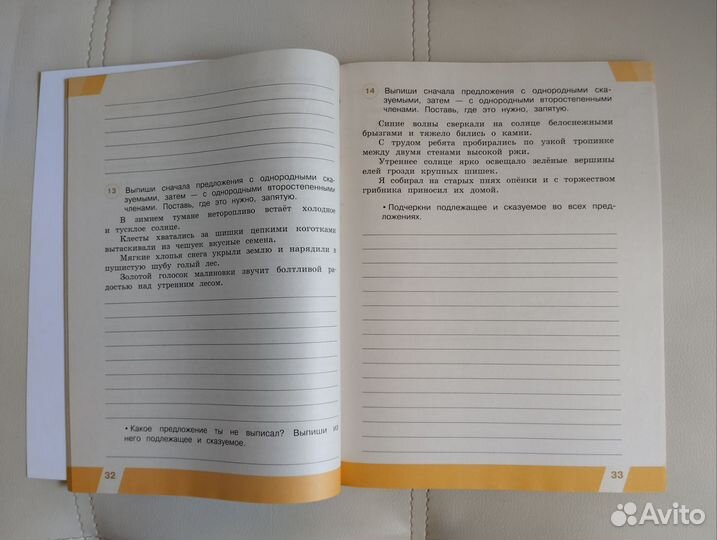 13 Выпиши сначала предложения с однородными ска-
зуемыми, затем — с однородными второстепенными
членами. Поставь, где это нужно, запятую.
В зимнем тумане неторопливо встаёт холодное
и тусклое солнце.
Клесты хватались за шишки цепкими коготками
вытаскивали из чешуек вкусные семена.
Мягкие хлопья снега укрыли землю и нарядили в
пушистую шубу голый лес.
Золотой голосок малиновки звучит болтливой ра-
достью над утренним лесом.
• Какое предложение ты не выписал? Выпиши из
него подлежащее и сказуемое.
32
14 Выпиши сначала предложения с однородными ска-
зуемыми, затем — с однородными второстепенными
членами. Поставь, где это нужно, запятую.
Синие волны сверкали на солнце белоснежными
брызгами и тяжело бились о камни.
С трудом ребята пробирались по узкой тропинке
между двумя стенами высокой ржи.
Утреннее солнце ярко освещало зелёные вершины
елей грозди крупных шишек.
Я собирал на старых пнях опёнки и с торжеством
грибника приносил их домой.
• Подчеркни подлежащее и сказуемое во всех пред-
ложениях.
33
Avito